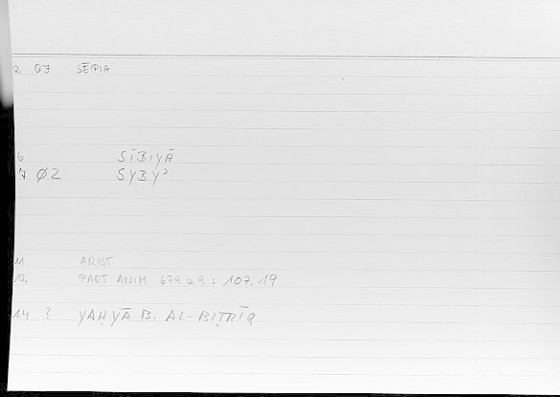 2 07 SĒPIA
6 SĪBIYĀ
7 Ø2 SYBYʾ
11 ARIST
12. PART ANIM 679 a 9 : 107.19
14 ? YAḤYĀ B. AL-BIṬRĪQ